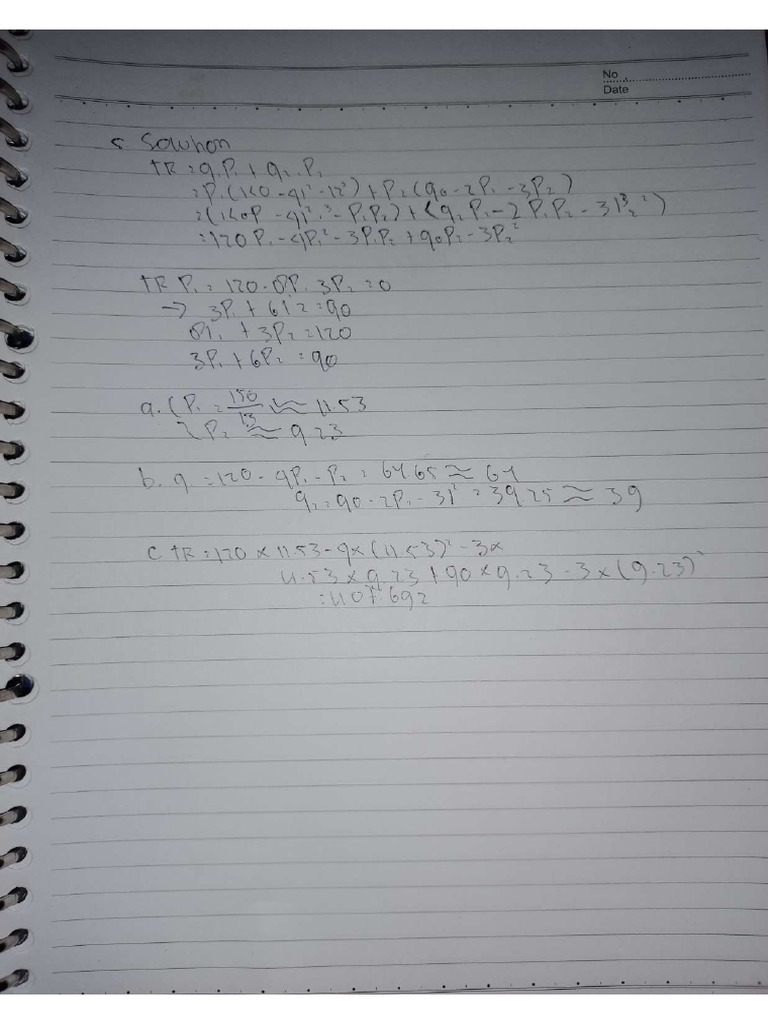 No
Date
5 Solution
TR = q1P1 + q2.P2
= P1(120 - 4P1 - P2) + P2(90 - 2P1 - 3P2)
= 120P1 - 4P1² - 3P1P2 + 90P2 - 3P2²
TR P1 = 120 - 8P1 - 3P2 = 0
→ 3P1 + 6P2 = 90
8P1 + 3P2 = 120
3P1 + 6P2 = 90
a. { P1 = 150/13 ≈ 11.53
{ P2 ≈ 9.23
b. q = 120 - 4P1 - P2 = 64.65 ≈ 64
q2 = 90 - 2P1 - 3P = 39.25 ≈ 39
C TR = 120 × 11.53 - 4×(11.53)² - 3×
11.53 × 9.23 + 90 × 9.23 - 3 × (9.23)²
= 1107.692